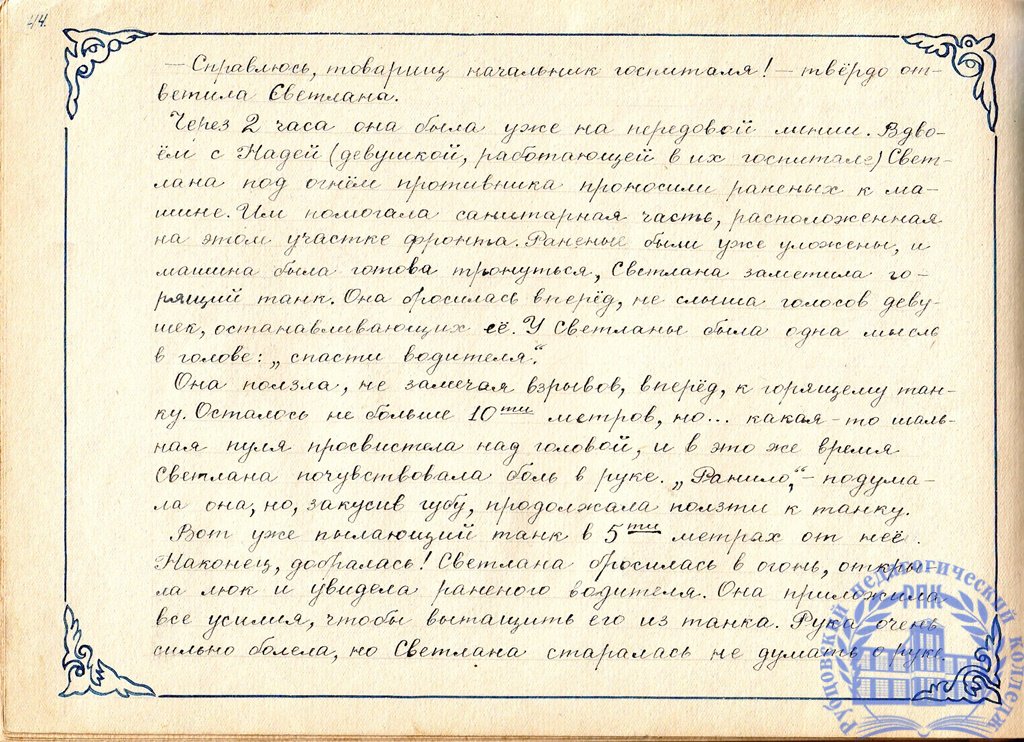 44.
— Справлюсь, товарищ начальник госпиталя! — твёрдо от-
ветила Светлана.
Через 2 часа она была уже на передовой линии. Вдво-
ём с Надей (девушкой, работающей в их госпитале) Свет-
лана под огнём противника проносили раненых к ма-
шине. Им помогала санитарная часть, расположенная
на этом участке фронта. Раненые были уже уложены, и
машина была готова тронуться, Светлана заметила го-
рящий танк. Она бросилась вперёд, не слыша голосов деву-
шек, останавливающих её. У Светланы была одна мысль
в голове: „спасти водителя“.
Она ползла, не замечая взрывов, вперёд, к горящему тан-
ку. Осталось не больше 10ти метров, но... какая-то шаль-
ная пуля просвистела над головой, и в это же время
Светлана почувствовала боль в руке. „Ранило,“ — подума-
ла она, но, закусив губу, продолжала ползти к танку.
Вот уже пылающий танк в 5ти метрах от неё.
Наконец, добралась! Светлана бросилась в огонь, откры-
ла люк и увидела раненого водителя. Она приложила
все усилия, чтобы вытащить его из танка. Рука очень
сильно болела, но Светлана старалась не думать о руке.
Рубцовский педагогический колледж
РПК